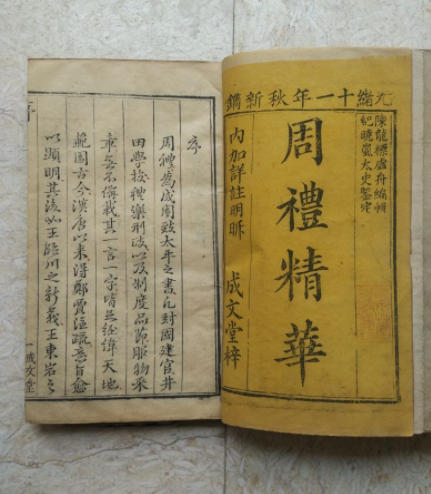 光緒十一年秋新鐫
陳龍標虛舟編輯
紀曉嵐太史鑒定
周禮精華
內加詳註明晰
成文堂梓
序
周禮為成周致太平之書凡封國建官井
田學校禮樂刑政以及制度品節服物采
章無不備載其一言一字皆足經緯天地
範圍古今漢唐以來得鄭賈註疏意旨愈
以顯明其後如王臨川之新義王東岩之
成文堂